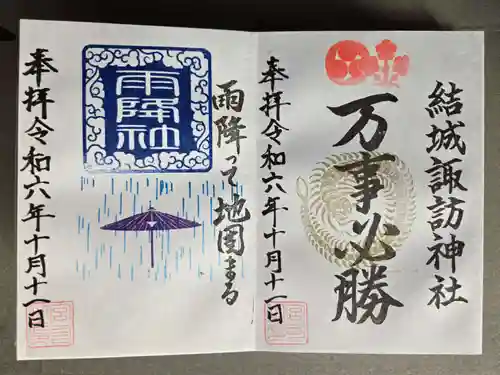 結城諏訪神社
万事必勝
奉拝令和六年十月十一日
雨降って地固まる
雨降社
奉拝令和六年十月十一日